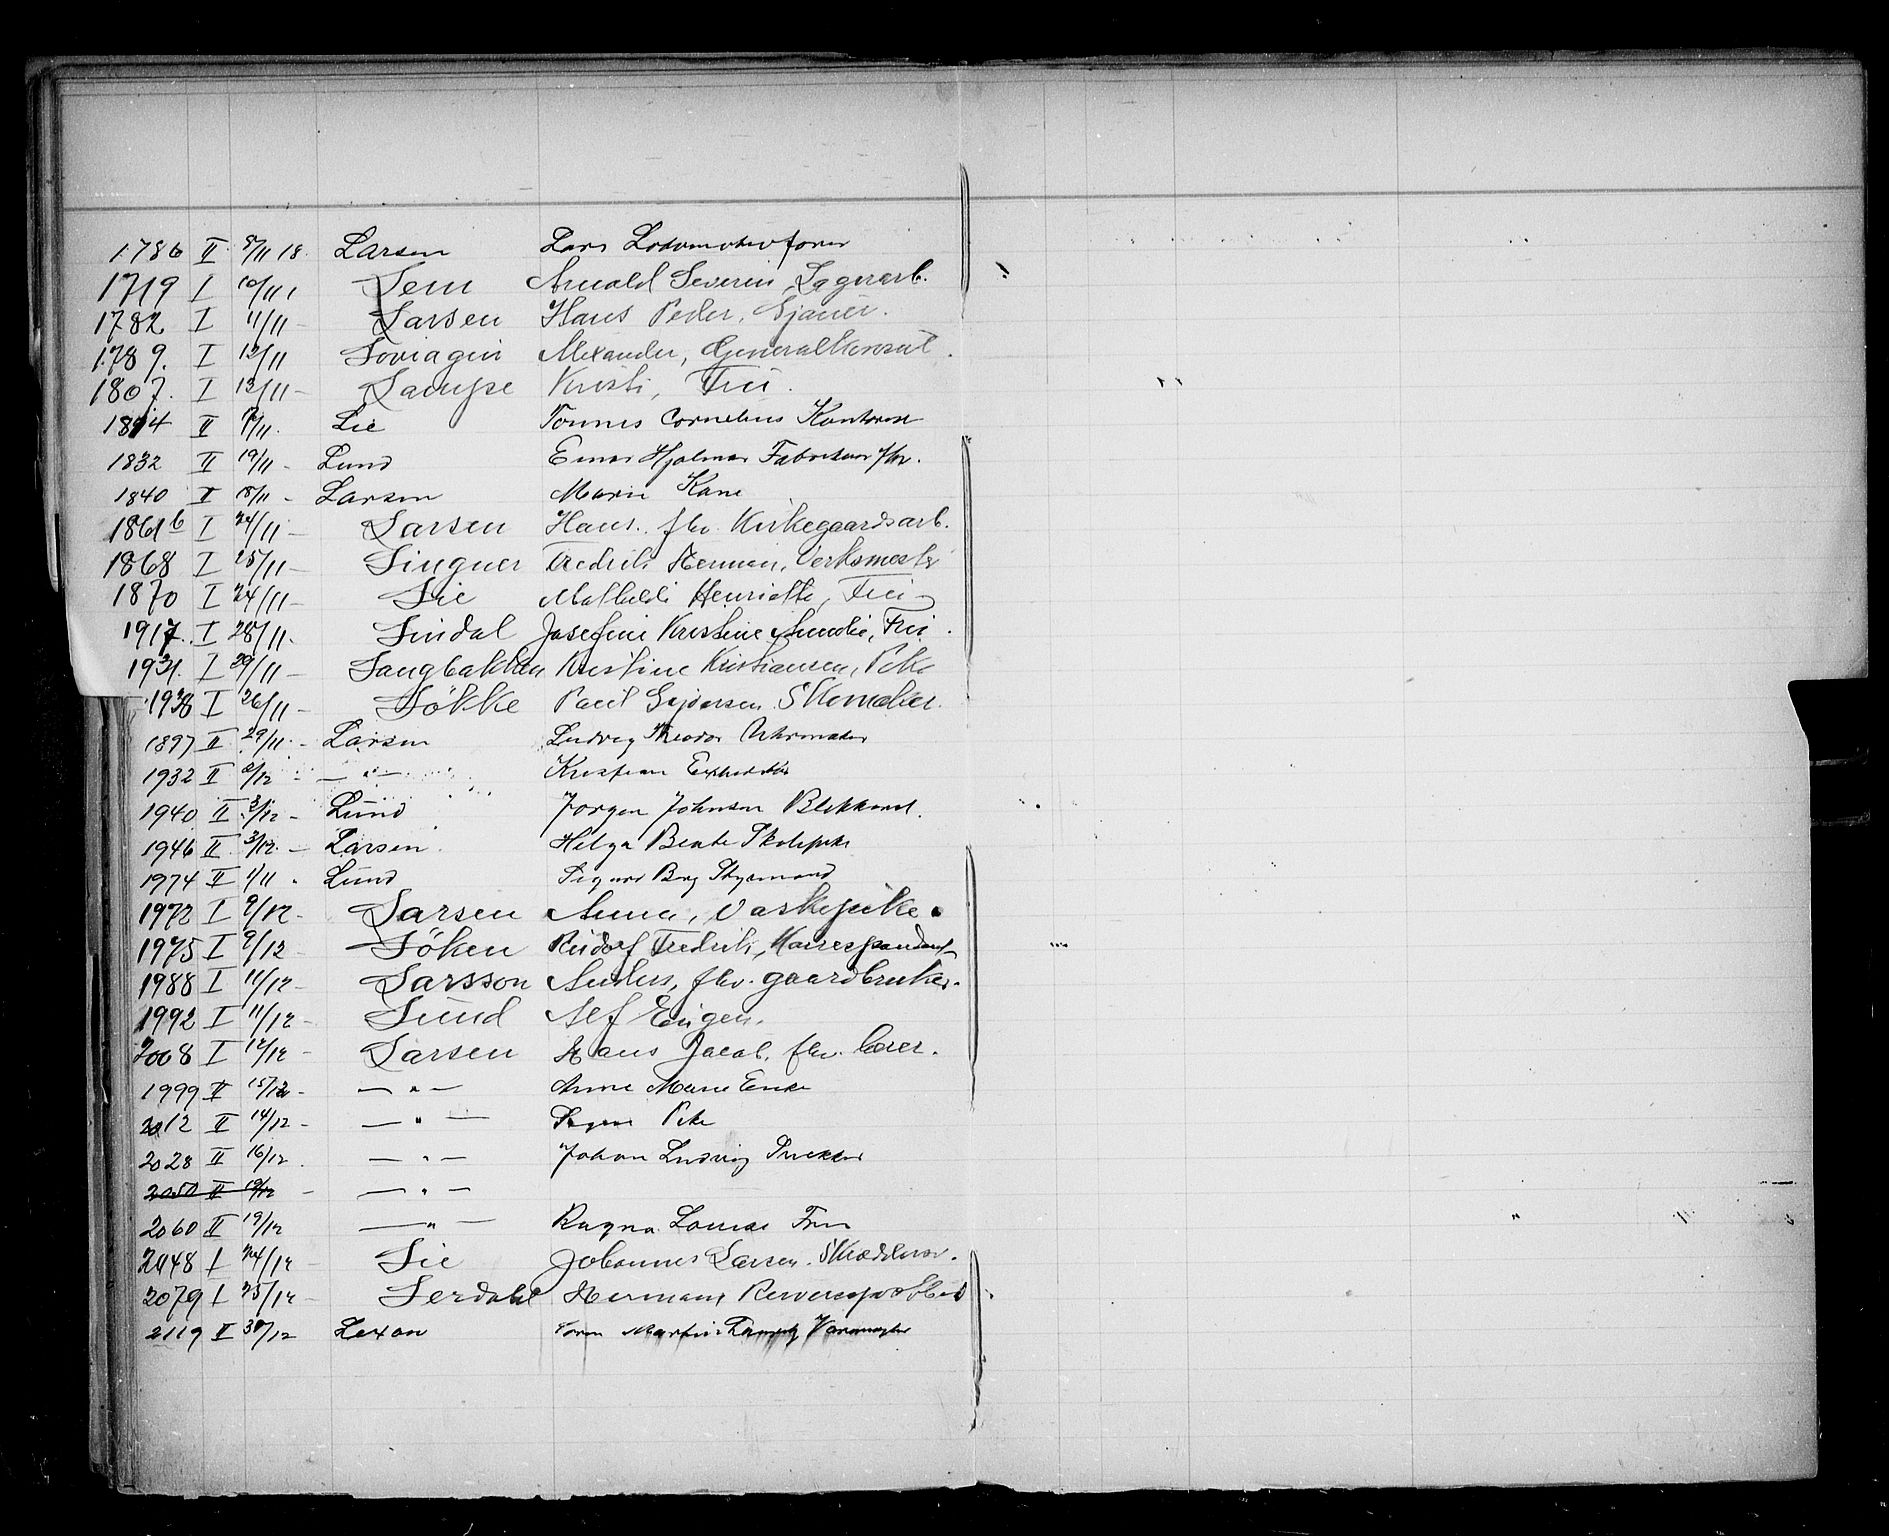 1786 II 8/11 18. Larsen Lars Lokomotivfører
1719 I 10/11 Lem Arvald Severin, Lagerarb.
1782 I 11/11 - Larsen Hans Peder, Sjauer.
1789. I 12/11 Loviagin Alexander, Generalkonsul.
1807. I 13/11 - Lampe Kristi, Frü.
1814 II /11. Lie Tonnes Cornelius Kontorist
1832 II 19/11 - Lund Einar Hjalmar Fabrikeier
1840 II 18/11 - Larsen Marie Kone
1861b I 24/11 - Larsen Hans. fhv. Kirkegaardsarb.
1868 I 25/11 - Lingner Fredrik Herman, Verksmester
1870 I 24/11 - Lie Mathilde Henriette, Früe
1917. I 28/11. Lindal Josefine Kristine Amalie, Frü.
1931. I 29/11 - Langbakken Kristine Kristiansen, Pike
1938 I 26/11 - Løkke Paul Gajdersen Skomaker.
1897 II 29/11. - Larsen Ludvig Theodor Urtemaker
1932 II 2/12 - — " — Kristian Expeditør
1940 II 3/12 - Lund Jørgen Johnsen Blikkensl.
1946 II 3/12. - Larsen Helga Beate Skolepike
1974 II 1/11 . Lund Sigurd Berg Styrmand
1972 I 9/12 - Larsen Anna, Vaskepike.
1975 I 9/12 - Løken Rudolf Fredrik, Korrespondent
1988 I 11/12 - Larsson Anders, fhv. gaardbruker.
1992 I 11/12 - Lund Alf Eügen.
2008 I 12/12 - Larsen Hans Jacob, fhv. lærer.
1999 II 15/12 - — " — Anne Marie Enke
2012 II 14/12 - — " — Pike
2028 II 16/12 . — " — Johan Ludvig Snekker
2050 II 19/12 - — " —
2060 II 19/12 — " — Ragna Louise Frue
2048 I 24/12 - Lie Johannes Larsen. Skrædder.
2079 I 25/12 - Lerdahl Hermann
2119 II 30/12 Lexon Martin